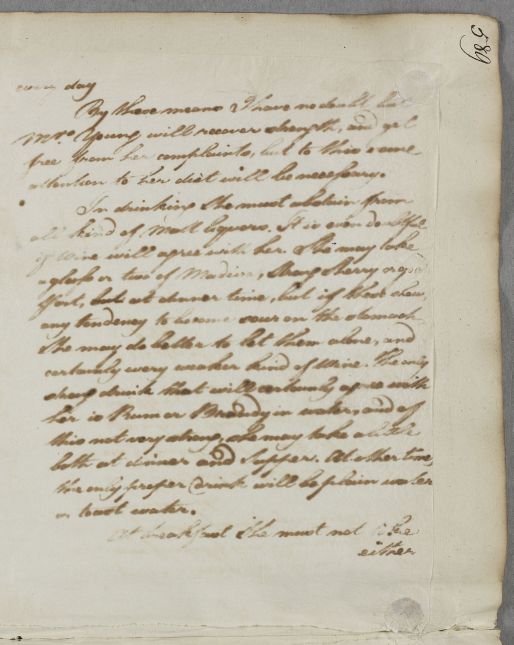 589
every day
By these means I have no doubt but
Mrs. Young will recover strength, and get
free from her complaints, but to this some
attention to her diet will be necessary.
In drinking She must abstain from
all kind of Malt liquors. It is even doubtful
if Wine will agree with her. She may take
a glass or two of Madeira, Strong Sherry or
Port, but at dinner time, but if these shew
any tendency to become sour on the stomach
She may do better to let them alone, and
certainly every weaker kind of Wine. The only
strong drink that will certainly agree with
her is Rum or Brandy in water, and of
this not very strong, she may take a little
both at dinner and Supper. At other times
the only proper drink will be plain water
or toast water.
At breakfast She must not take
either